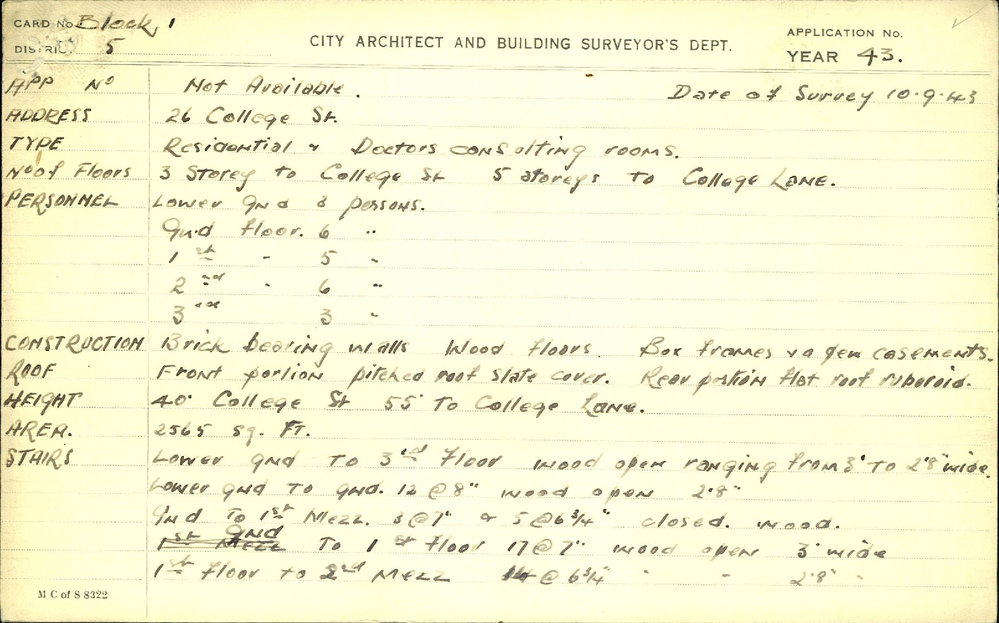 CARD No. Block 1
DISTRICT 5
CITY ARCHITECT AND BUILDING SURVEYOR'S DEPT.
APPLICATION No.
YEAR 43.
APP No Not Available. Date of Survey 10.9.43
ADDRESS 26 College St.
TYPE Residential & Doctors consulting rooms.
No of Floors 3 Storey to College St 5 storeys to College Lane.
PERSONNEL Lower Gnd 3 persons.
Gnd floor. 6 "
1st - 5 "
2nd - 6 "
3rd 3 "
CONSTRUCTION Brick bearing walls Wood floors. Box frames & a few casements.
ROOF Front portion pitched roof slate cover. Rear portion flat roof ruberoid.
HEIGHT 40' College St 55' to College Lane.
AREA. 2565 sq. Ft.
STAIRS Lower gnd to 3rd Floor wood open ranging from 3' to 2'8" wide.
Lower gnd to gnd. 12 @ 8" wood open 2'8"
Gnd to 1st Mezz. 3 @ 7" & 5 @ 6 3/4" closed. wood.
1st Mezz Gnd to 1st floor 17 @ 7" wood open 3' wide
1st floor to 2nd Mezz 14 @ 6 3/4 " - 2'8" "
M C of S 8322